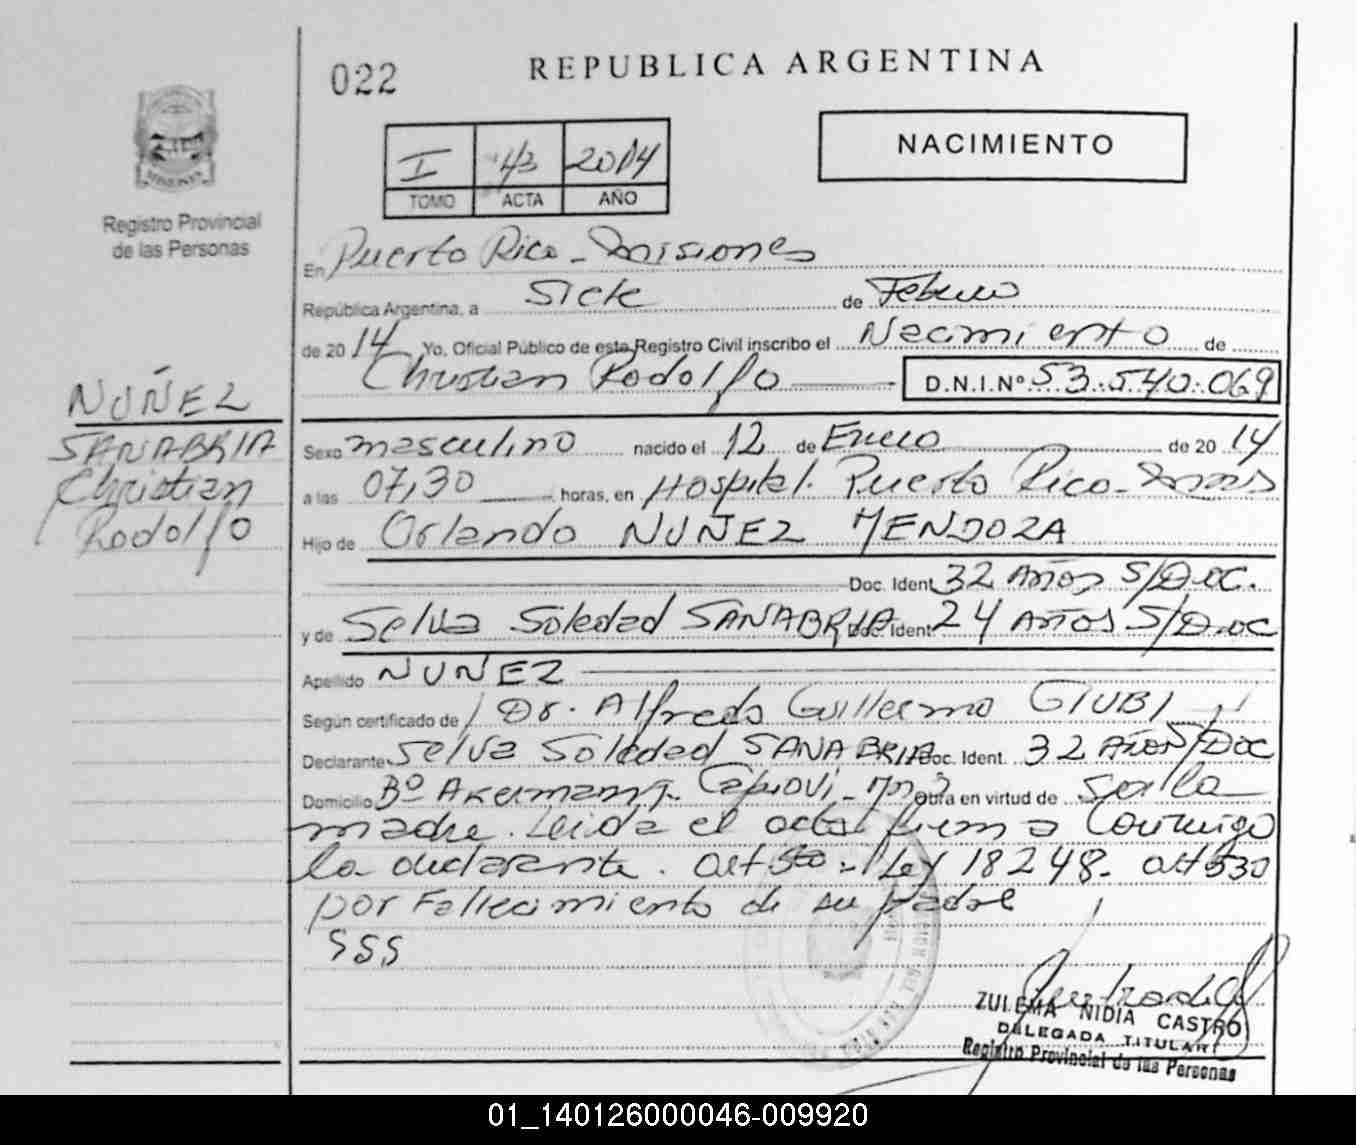 022
REPUBLICA ARGENTINA
NACIMIENTO
I 43 2014
TOMO ACTA AÑO
MISIONES
Registro Provincial
de las Personas
En Puerto Rico - Misiones
República Argentina, a Siete de Febrero
de 2014 Yo, Oficial Público de este Registro Civil inscribo el Nacimiento de
Christian Rodolfo D.N.I.Nº 53.540.069
NUÑEZ
SANABRIA
Christian
Rodolfo
Sexo masculino nacido el 12 de Enero de 2014
a las 07,30 horas, en Hospital. Puerto Rico - Mnes
Hijo de Orlando NUÑEZ MENDOZA
Doc. Ident. 32 Años S/Doc.
y de Selva Soledad SANABRIA Doc. Ident. 24 Años S/Doc
Apellido NUÑEZ
Según certificado de Dr. Alfredo Guillermo GIUBI
Declarante Selva Soledad SANABRIA Doc. Ident. 32 Años S/Doc
Domicilio Bº Akermann - Capiovi - Mnes Obra en virtud de Ser la
madre. Leida el acta firma Conmigo
la declarante. Art 5to - Ley 18248. Art 530
por Fallecimiento de su padre
SSS
ZULEMA NIDIA CASTRO
DELEGADA TITULAR
Registro Provincial de las Personas
01_140126000046-009920